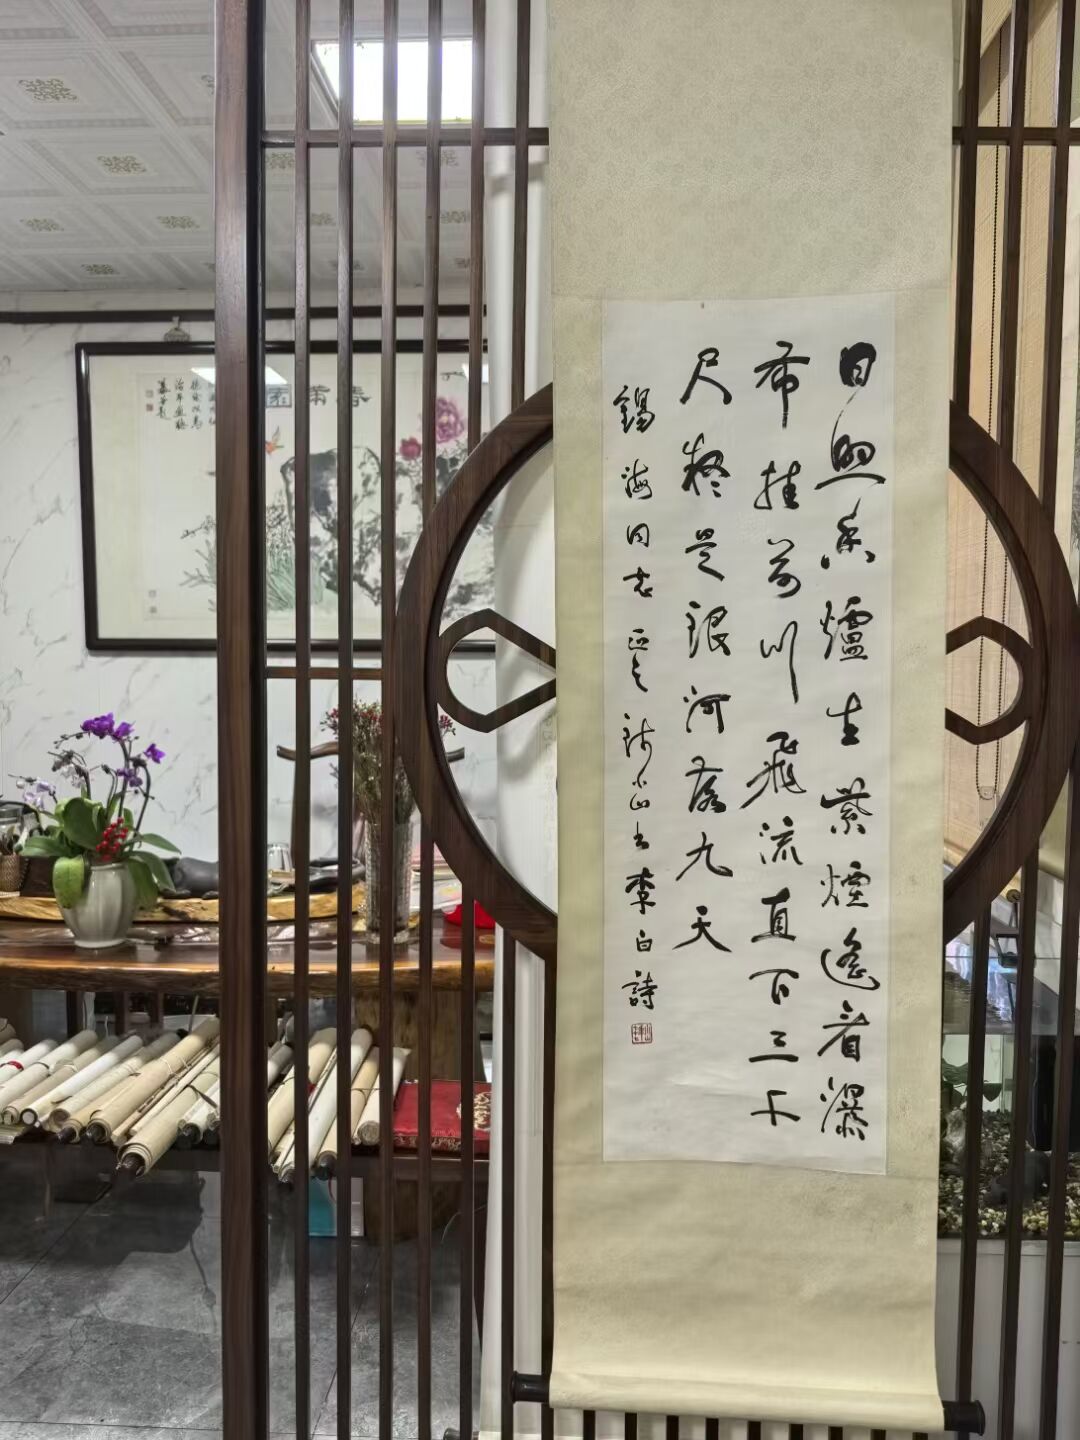 日照香爐生紫煙遙看瀑
布挂前川飛流直下三千
尺疑是銀河落九天
錫海同志正之 小山書李白詩